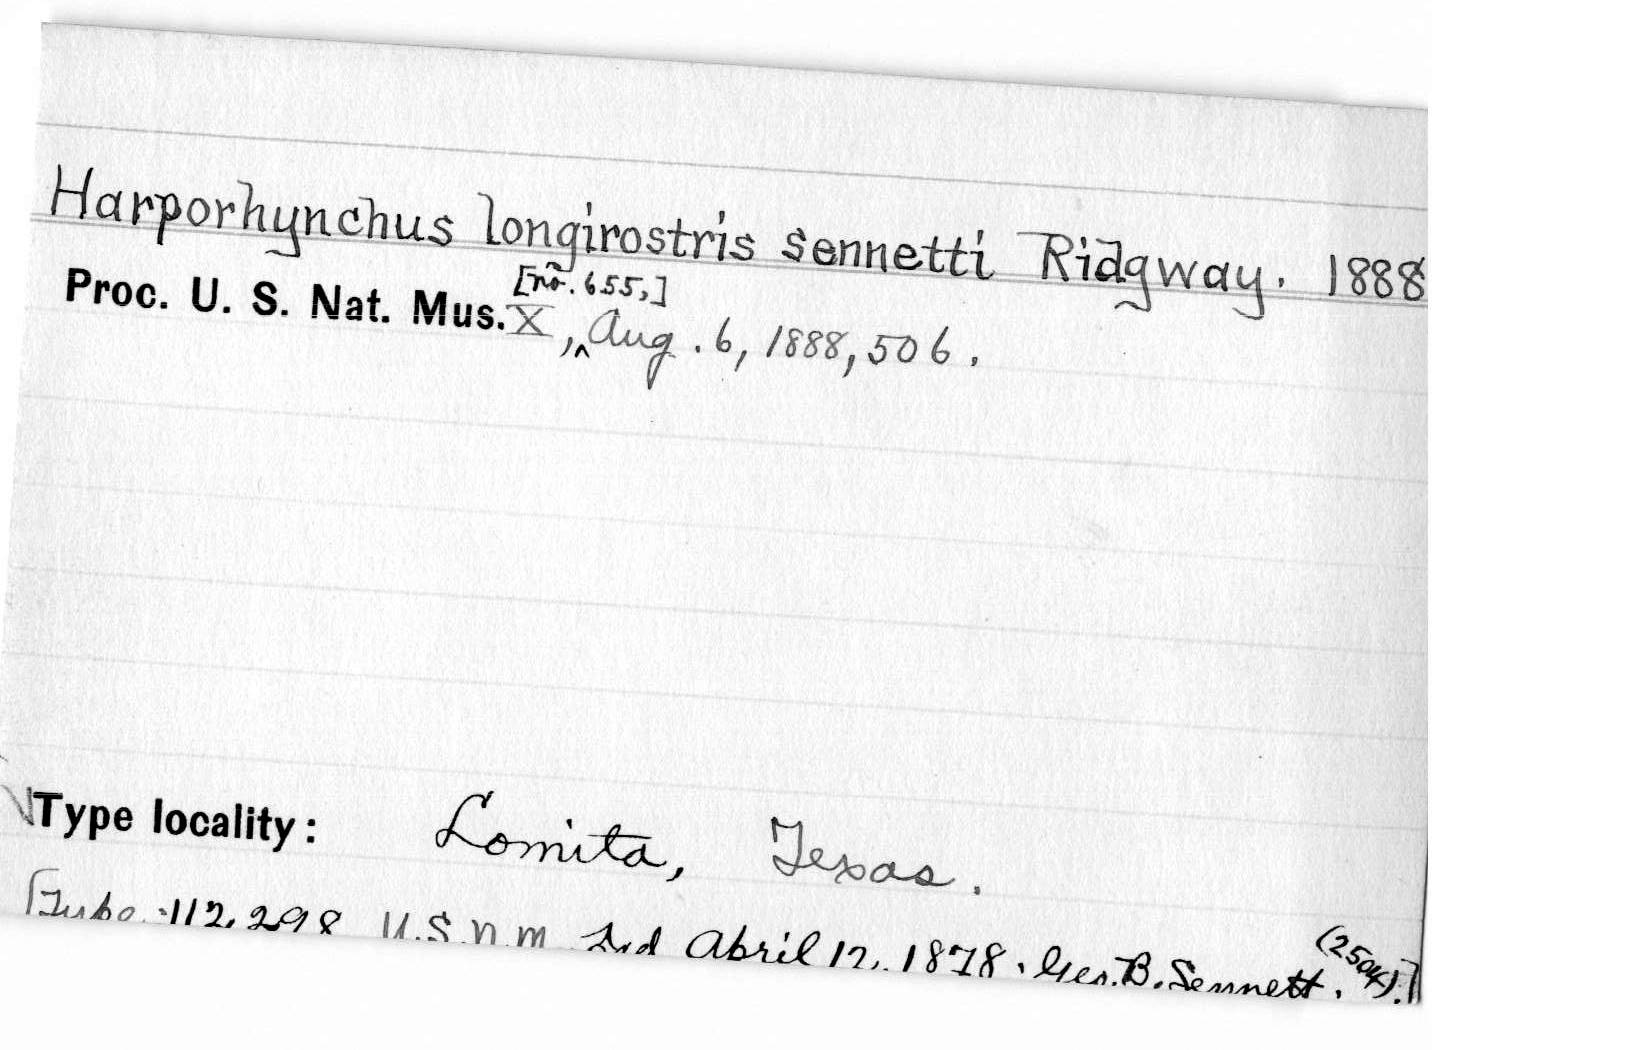 Harporhynchus longirostris sennetti Ridgway. 1888
[no. 655,]
Proc. U. S. Nat. Mus. X, ‸ Aug. 6, 1888, 506.
Type locality: Lomita, Texas.
[Type. 112,298 U.S.N.M. April 12, 1878. Geo. B. Sennett. (2504).]